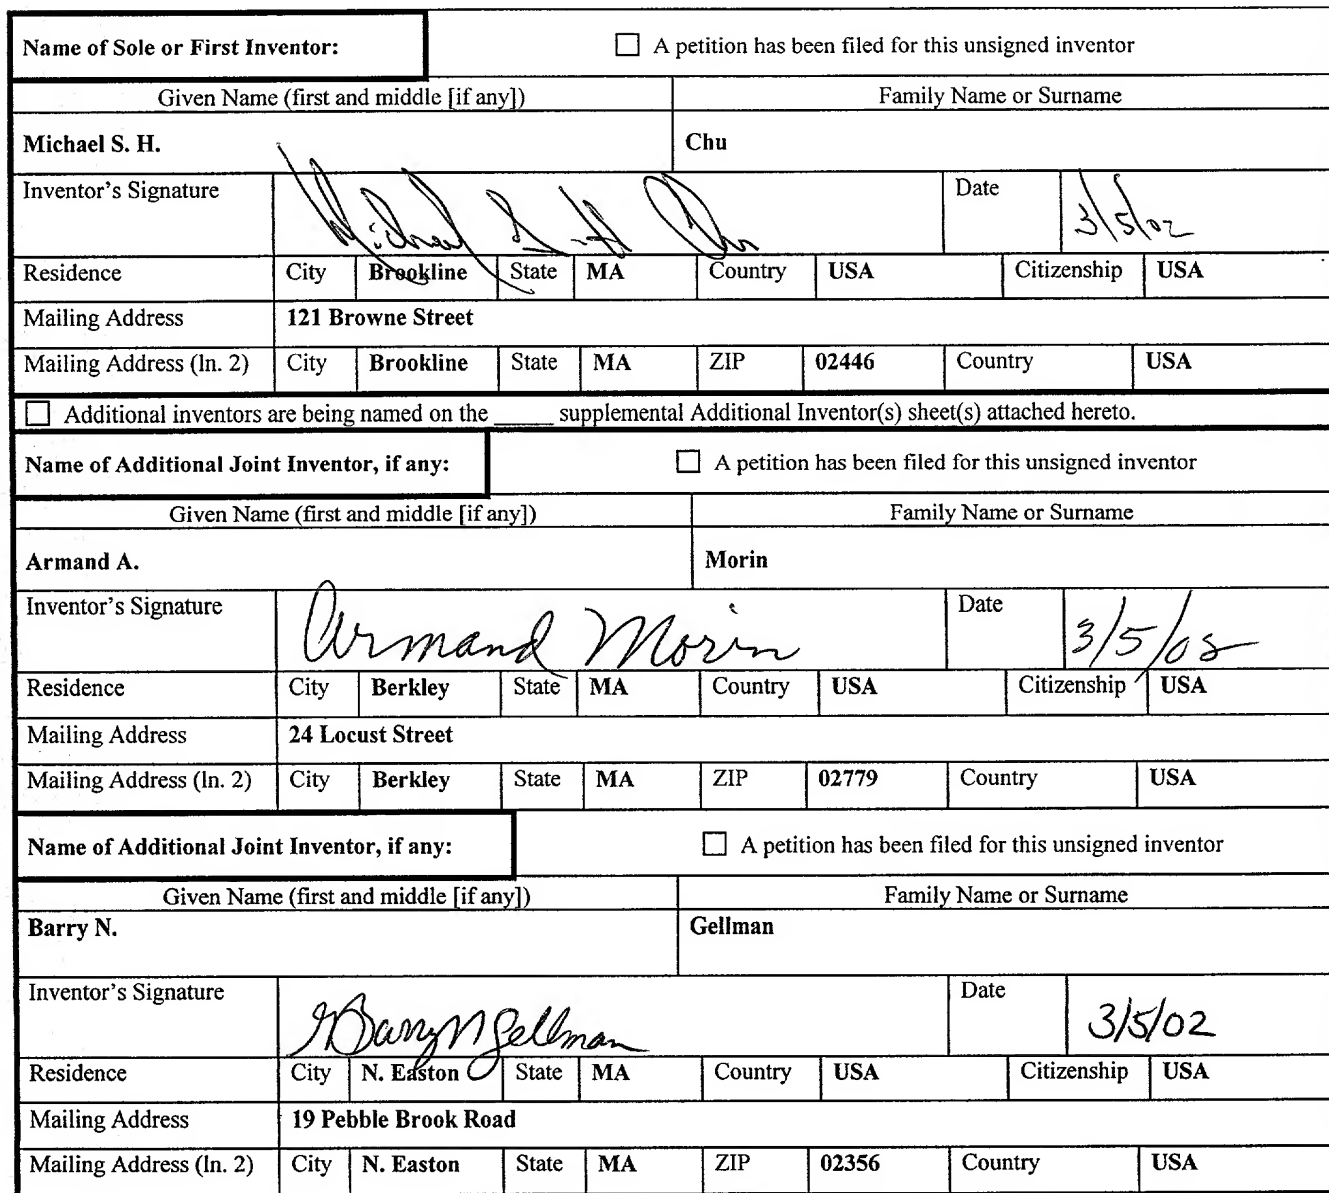 Name of Sole or First Inventor: ☐ A petition has been filed for this unsigned inventor
Given Name (first and middle [if any]) Family Name or Surname
Michael S. H. Chu
Inventor's Signature Michael S. H. Chu Date 3/5/02
Residence City Brookline State MA Country USA Citizenship USA
Mailing Address 121 Browne Street
Mailing Address (ln. 2) City Brookline State MA ZIP 02446 Country USA
☐ Additional inventors are being named on the _____ supplemental Additional Inventor(s) sheet(s) attached hereto.
Name of Additional Joint Inventor, if any: ☐ A petition has been filed for this unsigned inventor
Given Name (first and middle [if any]) Family Name or Surname
Armand A. Morin
Inventor's Signature Armand Morin Date 3/5/02
Residence City Berkley State MA Country USA Citizenship USA
Mailing Address 24 Locust Street
Mailing Address (ln. 2) City Berkley State MA ZIP 02779 Country USA
Name of Additional Joint Inventor, if any: ☐ A petition has been filed for this unsigned inventor
Given Name (first and middle [if any]) Family Name or Surname
Barry N. Gellman
Inventor's Signature Barry N Gellman Date 3/5/02
Residence City N. Easton State MA Country USA Citizenship USA
Mailing Address 19 Pebble Brook Road
Mailing Address (ln. 2) City N. Easton State MA ZIP 02356 Country USA